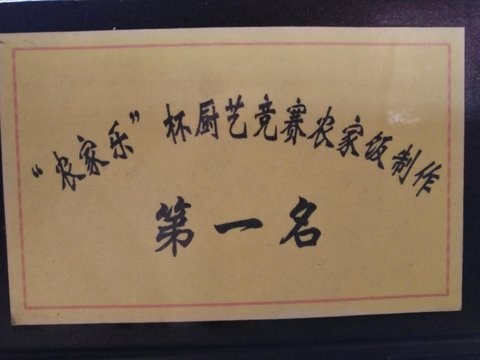 “农家乐”杯厨艺竞赛农家饭制作
第一名